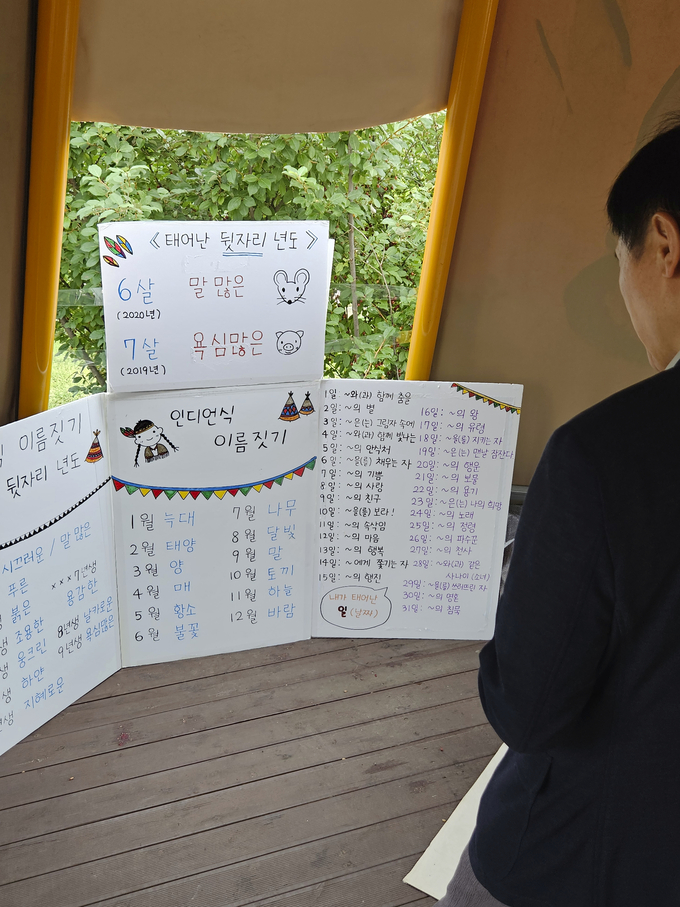 《 태어난 뒷자리 년도 》
6살 말 많은
(2020년)
7살 욕심많은
(2019년)
이름짓기
뒷자리 년도
시끄러운 / 말 많은
푸른
붉은
조용한
웅크린
하얀
지혜로운
×××7년생
용감한
8년생 날카로운
9년생 욕심많은
인디언식
이름짓기
1월 늑대
2월 태양
3월 양
4월 매
5월 황소
6월 불꽃
7월 나무
8월 달빛
9월 말
10월 토끼
11월 하늘
12월 바람
1일 : ~와(과) 함께 춤을
2일 : ~의 벌
3일 : ~은(는) 그림자 속에
4일 : ~와(과) 함께 빛나는
5일 : ~의 안식처
6일 : ~을(를) 채우는 자
7일 : ~의 기쁨
8일 : ~의 사랑
9일 : ~의 친구
10일 : ~을(를) 보라!
11일 : ~의 속삭임
12일 : ~의 마음
13일 : ~의 행복
14일 : ~에게 쫓기는 자
15일 : ~의 행진
16일 : ~의 왕
17일 : ~의 유령
18일 : ~을(를) 지키는 자
19일 : ~은(는) 맨날 잠잔다
20일 : ~의 행운
21일 : ~의 보물
22일 : ~의 용기
23일 : ~은(는) 나의 희망
24일 : ~의 노래
25일 : ~의 정령
26일 : ~의 파수꾼
27일 : ~의 천사
28일 : ~와(과) 같은
사나이(소녀)
29일 : ~을(를) 쓰러뜨린 자
30일 : ~의 영혼
31일 : ~의 침묵
내가 태어난
일(날짜)